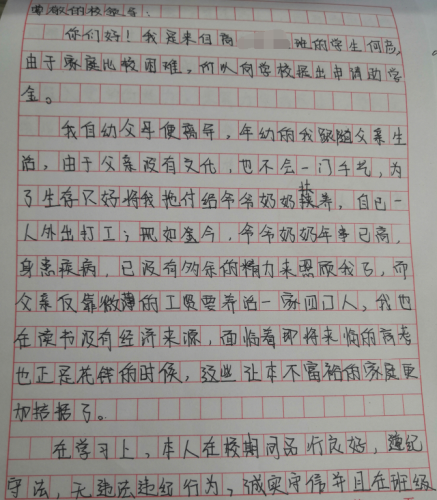 尊敬的校领导：
你们好！我是来自高班的学生何
由于家庭比较困难，所以向学校提出申请助学
金。
我自幼父母便离异，年幼的我跟随父亲生
活，由于父亲没有文化，也不会一门手艺，为
了生存只好将我托付给爷爷奶奶扶养，自己一
人外出打工；现如金今，爷爷奶奶年事已高，
身患疾病，已没有多余的精力来照顾我了，而
父亲仅靠微薄的工资要养活一家四口人，我也
在读书没有经济来源，面临着即将来临的高考
也正是花钱的时候，这些让本不富裕的家庭更
加拮据了。
在学习上，本人在校期间品行良好，遵纪
守法，无违法违纪行为，诚实守信并且在班级